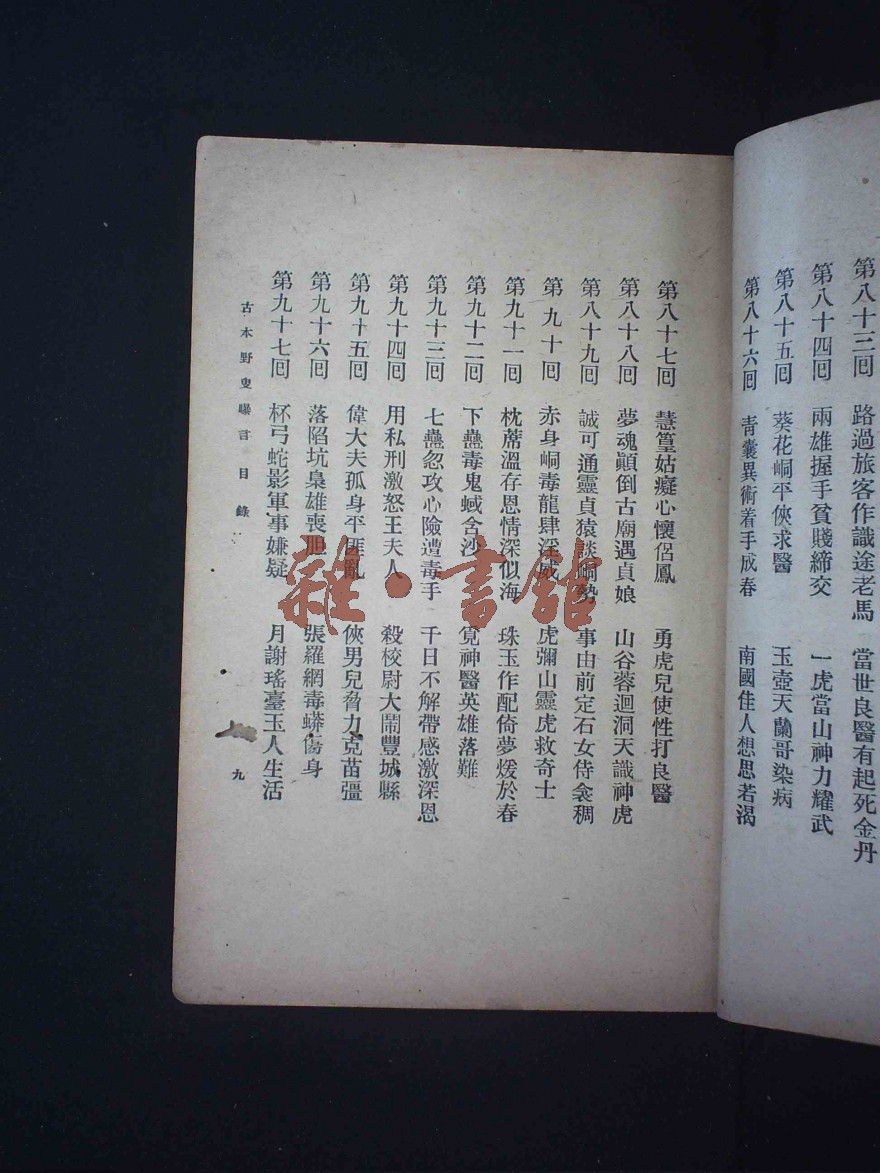 第八十三回 路過旅客作識途老馬 當世良醫有起死金丹
第八十四回 兩雄握手貧賤締交 一虎當山神力耀武
第八十五回 葵花峒平俠求醫 玉壺天蘭哥染病
第八十六回 青囊異術着手成春 南國佳人想思若渴
第八十七回 慧篁姑癡心懷侶鳳 勇虎兒使性打良醫
第八十八回 夢魂顚倒古廟遇貞娘 山谷蓉迴洞天識神虎
第八十九回 誠可通靈貞猿談峒勢 事由前定石女侍衾稠
第九十回 赤身峒毒龍肆淫威 虎彌山靈虎救奇士
第九十一回 枕蓆溫存恩情深似海 珠玉作配倚夢煖於春
第九十二回 下蠱毒鬼蜮含沙 覓神醫英雄落難
第九十三回 七蠱忽攻心險遭毒手 千日不解帶感激深恩
第九十四回 用私刑激怒王夫人 殺校尉大鬧豐城縣
第九十五回 偉大夫孤身平匪亂 俠男兒脅力克苗彊
第九十六回 落陷坑梟雄喪胆 張羅網毒蟒傷身
第九十七回 杯弓蛇影軍事嫌疑 月謝瑤臺玉人生活
古本野叟曝言目錄
九
雜·書館